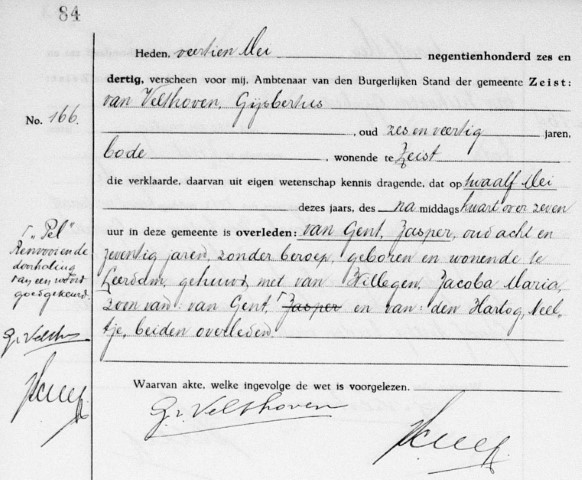 84
Heden, veertien Mei negentienhonderd zes en
dertig, verscheen voor mij, Ambtenaar van den Burgerlijken Stand der gemeente Zeist:
van Velthoven, Gijsbertus
No. 166.
, oud zes en veertig jaren,
bode, wonende te Zeist
die verklaarde, daarvan uit eigen wetenschap kennis dragende, dat op twaalf Mei
dezes jaars, des na middags kwart over zeven
uur in deze gemeente is overleden: van Gent, Jasper, oud acht en
zeventig jaren, zonder beroep, geboren en wonende te
Leerdam, gehuwd met van Willegen, Jacoba Maria,
zoon van van Gent, ┌ Jasper en van den Hartog, Neel-
tje, beiden overleden.
┌ "Pel"
Renvooi en de
doorhaling
van een woord
goedgekeurd.
G. v. Velthoven
Waarvan akte, welke ingevolge de wet is voorgelezen.
G. v. Velthoven